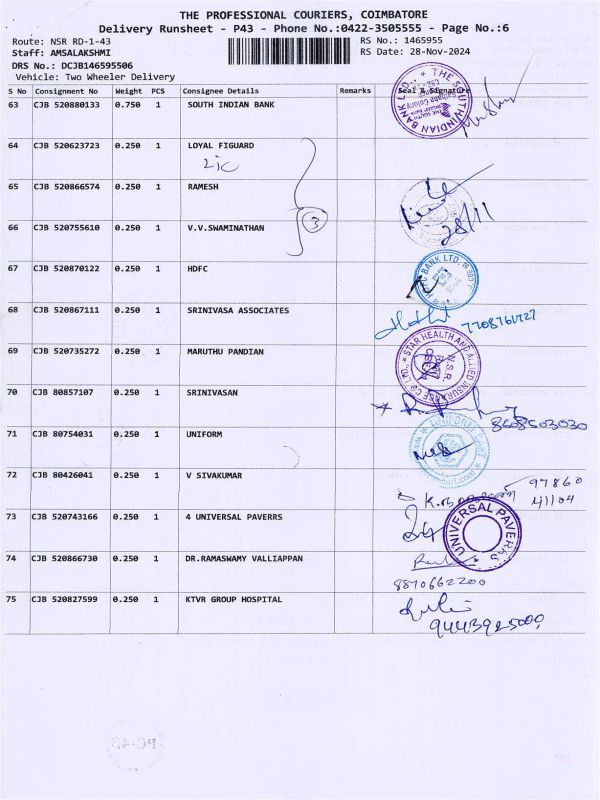 THE PROFESSIONAL COURIERS, COIMBATORE
Delivery Runsheet - P43 - Phone No.:0422-3505555 - Page No.:6
Route: NSR RD-1-43 RS No.: 1465955
Staff: AMSALAKSHMI RS Date: 28-Nov-2024
DRS No.: DCJB146595506
Vehicle: Two Wheeler Delivery
S No Consignment No Weight PCS Consignee Details Remarks Seal & Signature
63 CJB 520880133 0.750 1 SOUTH INDIAN BANK
THE SOUTH INDIAN BANK LTD.
64 CJB 520623723 0.250 1 LOYAL FIGUARD
LIC
65 CJB 520866574 0.250 1 RAMESH
28/11
3
66 CJB 520755610 0.250 1 V.V.SWAMINATHAN
67 CJB 520870122 0.250 1 HDFC
BANK LTD.
68 CJB 520867111 0.250 1 SRINIVASA ASSOCIATES
69 CJB 520735272 0.250 1 MARUTHU PANDIAN
STAR HEALTH AND ALLIED INSURANCE CO LTD.
N.S.R.
70 CJB 80857107 0.250 1 SRINIVASAN
71 CJB 80754031 0.250 1 UNIFORM
UNIFORM
72 CJB 80426041 0.250 1 V SIVAKUMAR
97860
41104
73 CJB 520743166 0.250 1 4 UNIVERSAL PAVERRS
UNIVERSAL PAVERS
74 CJB 520866730 0.250 1 DR.RAMASWAMY VALLIAPPAN
8870662200
75 CJB 520827599 0.250 1 KTVR GROUP HOSPITAL